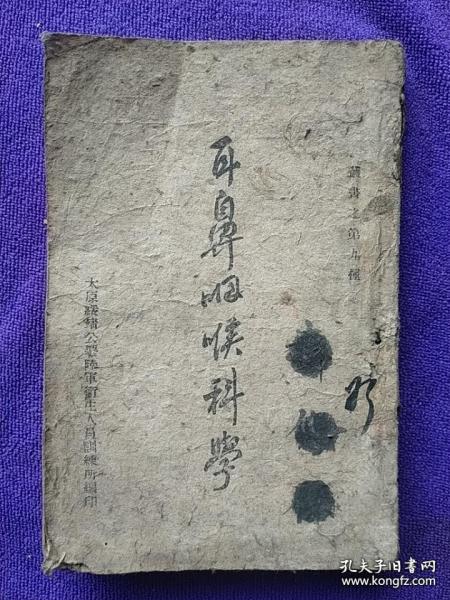 叢書之第九種
耳鼻咽喉科學
太原綏靖公署陸軍衛生人員訓練所編印
孔夫子旧书网
www.kongfz.com